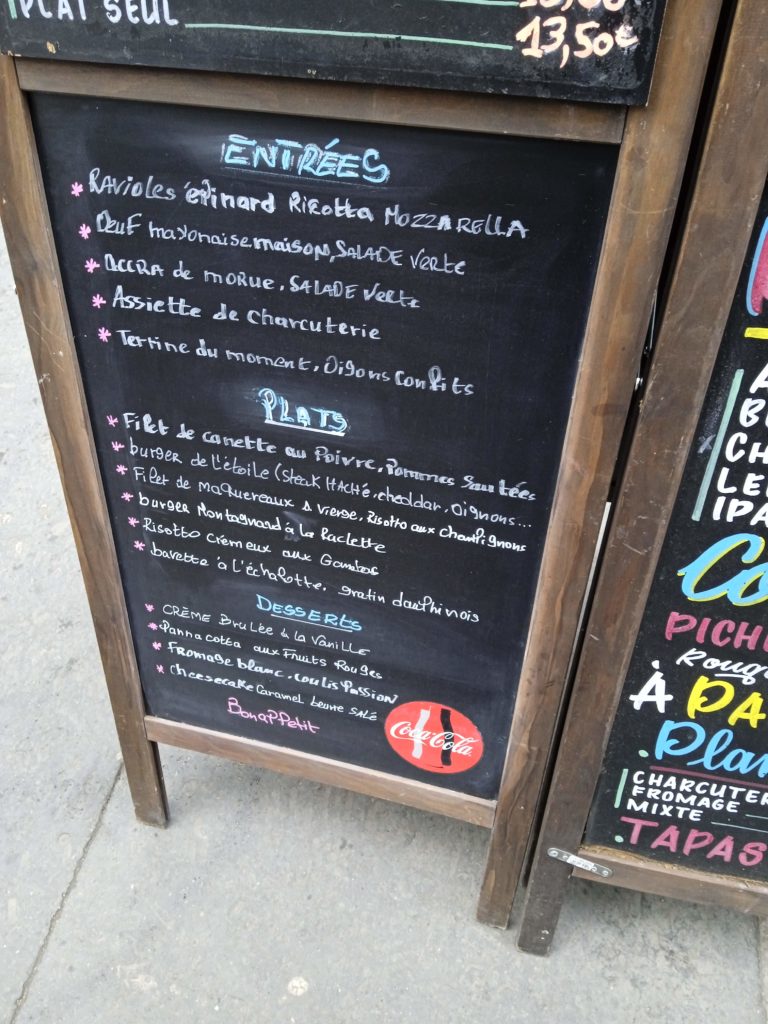 PLAT SEUL
13,50€
ENTRÉES
* RAVioles épinard Ricotta MOZZARELLA
* Œuf mayonaise maison, SALADE Verte
* Accra de morue, SALADE Verte
* Assiette de charcuterie
* Terrine du moment, Oigons Confits
PLATS
* Filet de canette au Poivre, Pommes Sautées
* burger de l'étoile (Steak HACHé, cheddar, Oignons...
* Filet de maquereaux A vierge, Risotto aux champignons
* burger Montagnard à la Raclette
* Risotto Crèmeux aux Gambas
* bavette à l'échalotte, gratin dauphinois
DESSERTS
* CRÈME BRULÉE à la VANILLE
* Panna cotta aux Fruits Rouges
* Fromage blanc, coulis Passion
* Cheesecake Caramel beurre SALÉ
Bon aPPetit
Coca-Cola
PICH
Rouge
À PA
Plan
CHARCUTER
FROMAGE
MIXTE
TAPAS